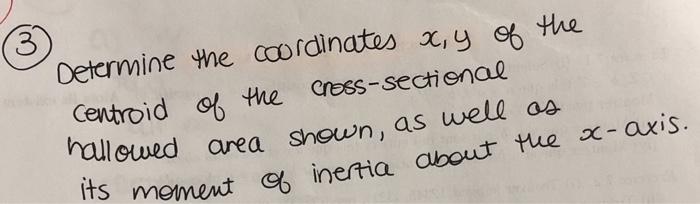 ③
Determine the coordinates x, y of the
centroid of the cross-sectional
hallowed area shown, as well as
its moment of inertia about the x-axis.